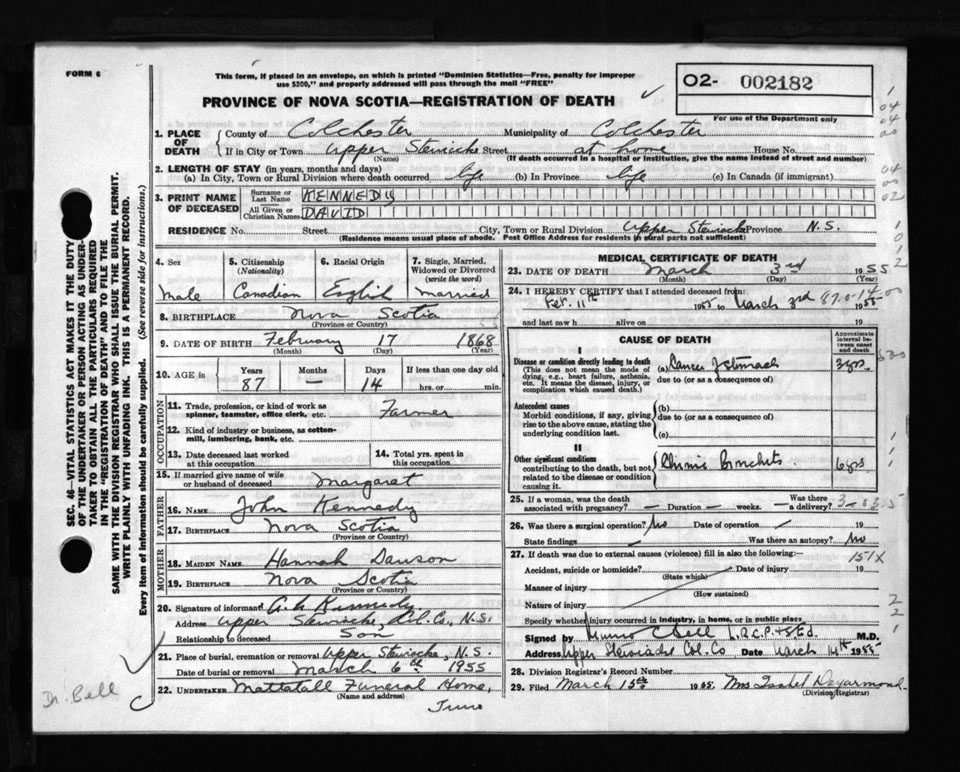 FORM 6
This form, if placed in an envelope, on which is printed "Dominion Statistics—Free, penalty for improper
use $300," and properly addressed will pass through the mail "FREE"
PROVINCE OF NOVA SCOTIA—REGISTRATION OF DEATH
02- 002182
For use of the Department only
1. PLACE OF DEATH
County of Colchester Municipality of Colchester
If in City or Town Upper Stewiacke Street at home House No.
(Name) (If death occurred in a hospital or institution, give the name instead of street and number)
2. LENGTH OF STAY (in years, months and days)
(a) In City, Town or Rural Division where death occurred life (b) In Province life (c) In Canada (if immigrant)
3. PRINT NAME OF DECEASED
Surname or Last Name KENNEDY
All Given or Christian Names DAVID
RESIDENCE No. Street City, Town or Rural Division Upper Stewiacke Province N.S.
(Residence means usual place of abode. Post Office Address for residents in rural parts not sufficient)
4. Sex
Male
5. Citizenship
(Nationality)
Canadian
6. Racial Origin
English
7. Single, Married,
Widowed or Divorced
(write the word)
Married
8. BIRTHPLACE Nova Scotia
(Province or Country)
9. DATE OF BIRTH February 17 1868
(Month) (Day) (Year)
10. AGE in
Years Months Days If less than one day old
87 — 14 hrs. or min.
OCCUPATION
11. Trade, profession, or kind of work as
spinner, teamster, office clerk, etc. Farmer
12. Kind of industry or business, as cotton-
mill, lumbering, bank, etc.
13. Date deceased last worked
at this occupation
14. Total yrs. spent in
this occupation
15. If married give name of wife
or husband of deceased Margaret
FATHER
16. NAME John Kennedy
17. BIRTHPLACE Nova Scotia
(Province or Country)
MOTHER
18. MAIDEN NAME Hannah Dawson
19. BIRTHPLACE Nova Scotia
(Province or Country)
20. Signature of informant Kennedy
Address Upper Stewiacke, Col. Co., N.S.
Relationship to deceased Son
21. Place of burial, cremation or removal Upper Stewiacke, N.S.
Date of burial or removal March 6th 1955
22. UNDERTAKER Mattatall Funeral Home,
(Name and address)
Truro
MEDICAL CERTIFICATE OF DEATH
23. DATE OF DEATH March 3rd 1955
(Month) (Day)
24. I HEREBY CERTIFY that I attended deceased from:
Feb. 11th 1955 to March 3rd 1955
87-0-14
and last saw h alive on 19
CAUSE OF DEATH
Approximate
interval between
onset
and death
I
Disease or condition directly leading to death
(This does not mean the mode of
dying, e.g., heart failure, asthenia,
etc. It means the disease, injury, or
complication which caused death.)
(a) Cancer of stomach 3 yrs.
due to (or as a consequence of)
Antecedent causes
Morbid conditions, if any, giving
rise to the above cause, stating the
underlying condition last.
(b)
due to (or as a consequence of)
(c)
II
Other significant conditions
contributing to the death, but not
related to the disease or condition
causing it.
Chronic Bronchitis 6 yrs
25. If a woman, was the death
associated with pregnancy? — Duration — weeks. Was there
a delivery?
26. Was there a surgical operation? No Date of operation 19
State findings Was there an autopsy? No
27. If death was due to external causes (violence) fill in also the following:—
151X
Accident, suicide or homicide? Date of injury 19
(State which)
Manner of injury
(How sustained)
Nature of injury
Specify whether injury occurred in industry, in home, or in public place
Signed by Munro C Bell L.R.C.P. & S. Ed. M.D.
Address Upper Stewiacke Col. Co Date March 14th 1955
28. Division Registrar's Record Number
29. Filed March 15th 1955 Mrs Isabel Deyarmond
(Division Registrar)
SEC. 46—VITAL STATISTICS ACT MAKES IT THE DUTY
OF THE UNDERTAKER OR PERSON ACTING AS UNDER-
TAKER TO OBTAIN ALL THE PARTICULARS REQUIRED
IN THE "REGISTRATION OF DEATH" AND TO FILE THE
SAME WITH THE DIVISION REGISTRAR WHO SHALL ISSUE THE BURIAL PERMIT.
WRITE PLAINLY WITH UNFADING INK. THIS IS A PERMANENT RECORD.
Every item of information should be carefully supplied. (See reverse side for instructions.)
Dr. Bell